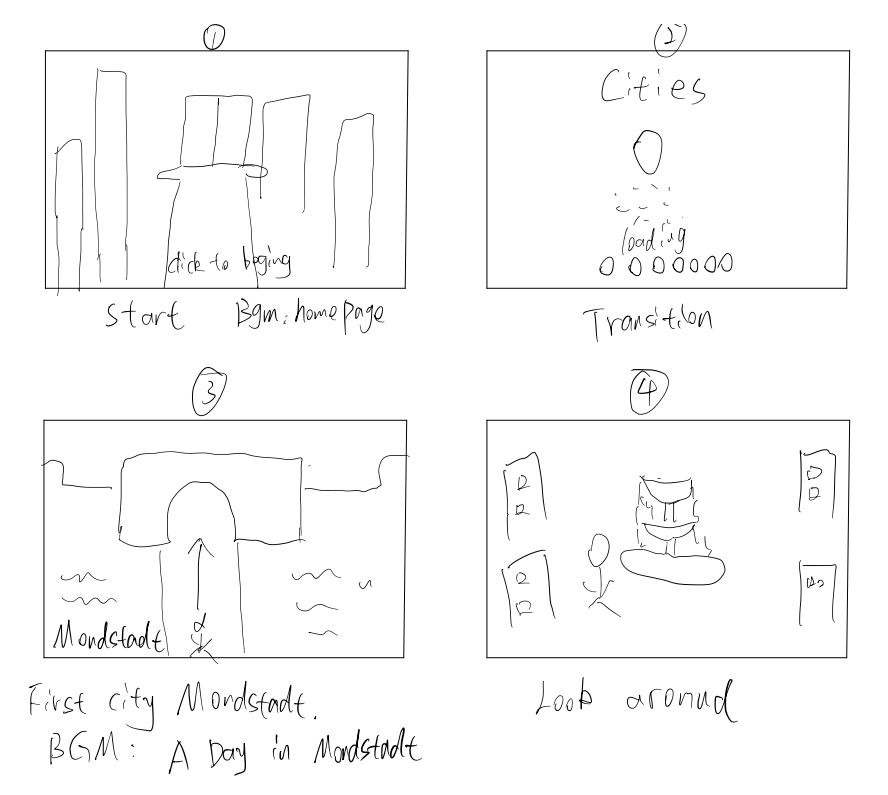 ①
click to beging
Start Bgm: homepage
②
Cities
loading
Transition
③
Mondstadt
First city Mondstadt.
BGM: A Day in Mondstadt
④
Look around